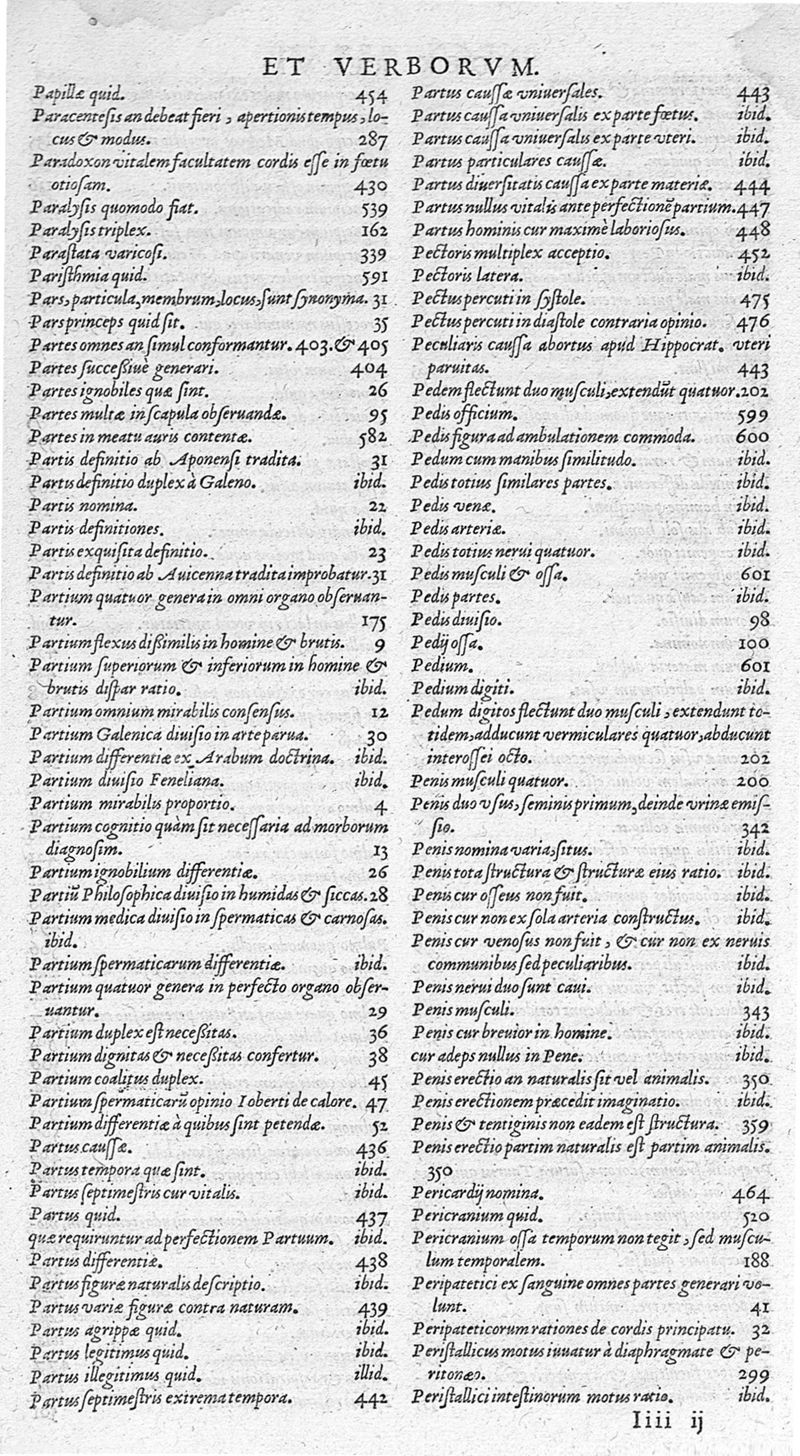 ET VERBORVM.
Papillæ quid. 454
Paracentesis an debeat fieri, apertionis tempus, lo-
cus & modus. 287
Paradoxon vitalem facultatem cordis esse in fœtu
otiosam. 430
Paralysis quomodo fiat. 539
Paralysis triplex. 162
Parastata varicosi. 339
Paristhmia quid. 591
Pars, particula, membrum, locus, sunt synonyma. 31
Pars princeps quid sit. 35
Partes omnes an simul conformantur. 403. & 405
Partes successiuè generari. 404
Partes ignobiles quæ sint. 26
Partes multæ in scapula obseruandæ. 95
Partes in meatu auris contentæ. 582
Partis definitio ab Aponensi tradita. 31
Partis definitio duplex à Galeno. ibid.
Partis nomina. 22
Partis definitiones. ibid.
Partis exquisita definitio. 23
Partis definitio ab Auicenna tradita improbatur. 31
Partium quatuor genera in omni organo obseruan-
tur. 175
Partium flexus dißimilis in homine & brutis. 9
Partium superiorum & inferiorum in homine &
brutis dispar ratio. ibid.
Partium omnium mirabilis consensus. 12
Partium Galenica diuisio in arte parua. 30
Partium differentiæ ex Arabum doctrina. ibid.
Partium diuisio Feneliana. ibid.
Partium mirabilis proportio. 4
Partium cognitio quàm sit necessaria ad morborum
diagnosim. 13
Partium ignobilium differentiæ. 26
Partiũ Philosophica diuisio in humidas & siccas. 28
Partium medica diuisio in spermaticas & carnosas.
ibid.
Partium spermaticarum differentiæ. ibid.
Partium quatuor genera in perfecto organo obser-
uantur. 29
Partium duplex est neceßitas. 36
Partium dignitas & neceßitas confertur. 38
Partium coalitus duplex. 45
Partium spermaticarũ opinio Ioberti de calore. 47
Partium differentiæ à quibus sint petendæ. 52
Partus caussæ. 436
Partus tempora quæ sint. ibid.
Partus septimestris cur vitalis. ibid.
Partus quid. 437
quæ requiruntur ad perfectionem Partuum. ibid.
Partus differentiæ. 438
Partus figuræ naturalis descriptio. ibid.
Partus variæ figuræ contra naturam. 439
Partus agrippæ quid. ibid.
Partus legitimus quid. ibid.
Partus illegitimus quid. illid.
Partus septimestris extrema tempora. 442
Partus caussæ vniuersales. 443
Partus caussa vniuersalis ex parte fœtus. ibid.
Partus caussa vniuersalis ex parte vteri. ibid.
Partus particulares caussæ. ibid.
Partus diuersitatis caussa ex parte materiæ. 444
Partus nullus vitalis ante perfectionẽ partium. 447
Partus hominis cur maximè laboriosus. 448
Pectoris multiplex acceptio. 452
Pectoris latera. ibid.
Pectus percuti in systole. 475
Pectus percuti in diastole contraria opinio. 476
Peculiaris caussa abortus apud Hippocrat. vteri
paruitas. 443
Pedem flectunt duo musculi, extendũt quatuor. 202
Pedis officium. 599
Pedis figura ad ambulationem commoda. 600
Pedum cum manibus similitudo. ibid.
Pedis totius similares partes. ibid.
Pedis venæ. ibid.
Pedis arteriæ. ibid.
Pedis totius nerui quatuor. ibid.
Pedis musculi & ossa. 601
Pedis partes. ibid.
Pedis diuisio. 98
Pedij ossa. 100
Pedium. 601
Pedium digiti. ibid.
Pedum digitos flectunt duo musculi, extendunt to-
tidem, adducunt vermiculares quatuor, abducunt
interossei octo. 202
Penis musculi quatuor. 200
Penis duo vsus, seminis primum, deinde vrinæ emis-
sio. 342
Penis nomina varia, situs. ibid.
Penis tota structura & structuræ eius ratio. ibid.
Penis cur osseus non fuit. ibid.
Penis cur non ex sola arteria constructus. ibid.
Penis cur venosus non fuit, & cur non ex neruis
communibus sed peculiaribus. ibid.
Penis nerui duo sunt caui. ibid.
Penis musculi. 343
Penis cur breuior in homine. ibid.
cur adeps nullus in Pene. ibid.
Penis erectio an naturalis sit vel animalis. 350
Penis erectionem præcedit imaginatio. ibid.
Penis & tentiginis non eadem est structura. 359
Penis erectio partim naturalis est partim animalis.
350
Pericardij nomina. 464
Pericranium quid. 520
Pericranium ossa temporum non tegit, sed muscu-
lum temporalem. 188
Peripatetici ex sanguine omnes partes generari vo-
lunt. 41
Peripateticorum rationes de cordis principatu. 32
Peristallicus motus iuuatur à diaphragmate & pe-
ritonæo. 299
Peristallici intestinorum motus ratio. ibid.
Iiii ij